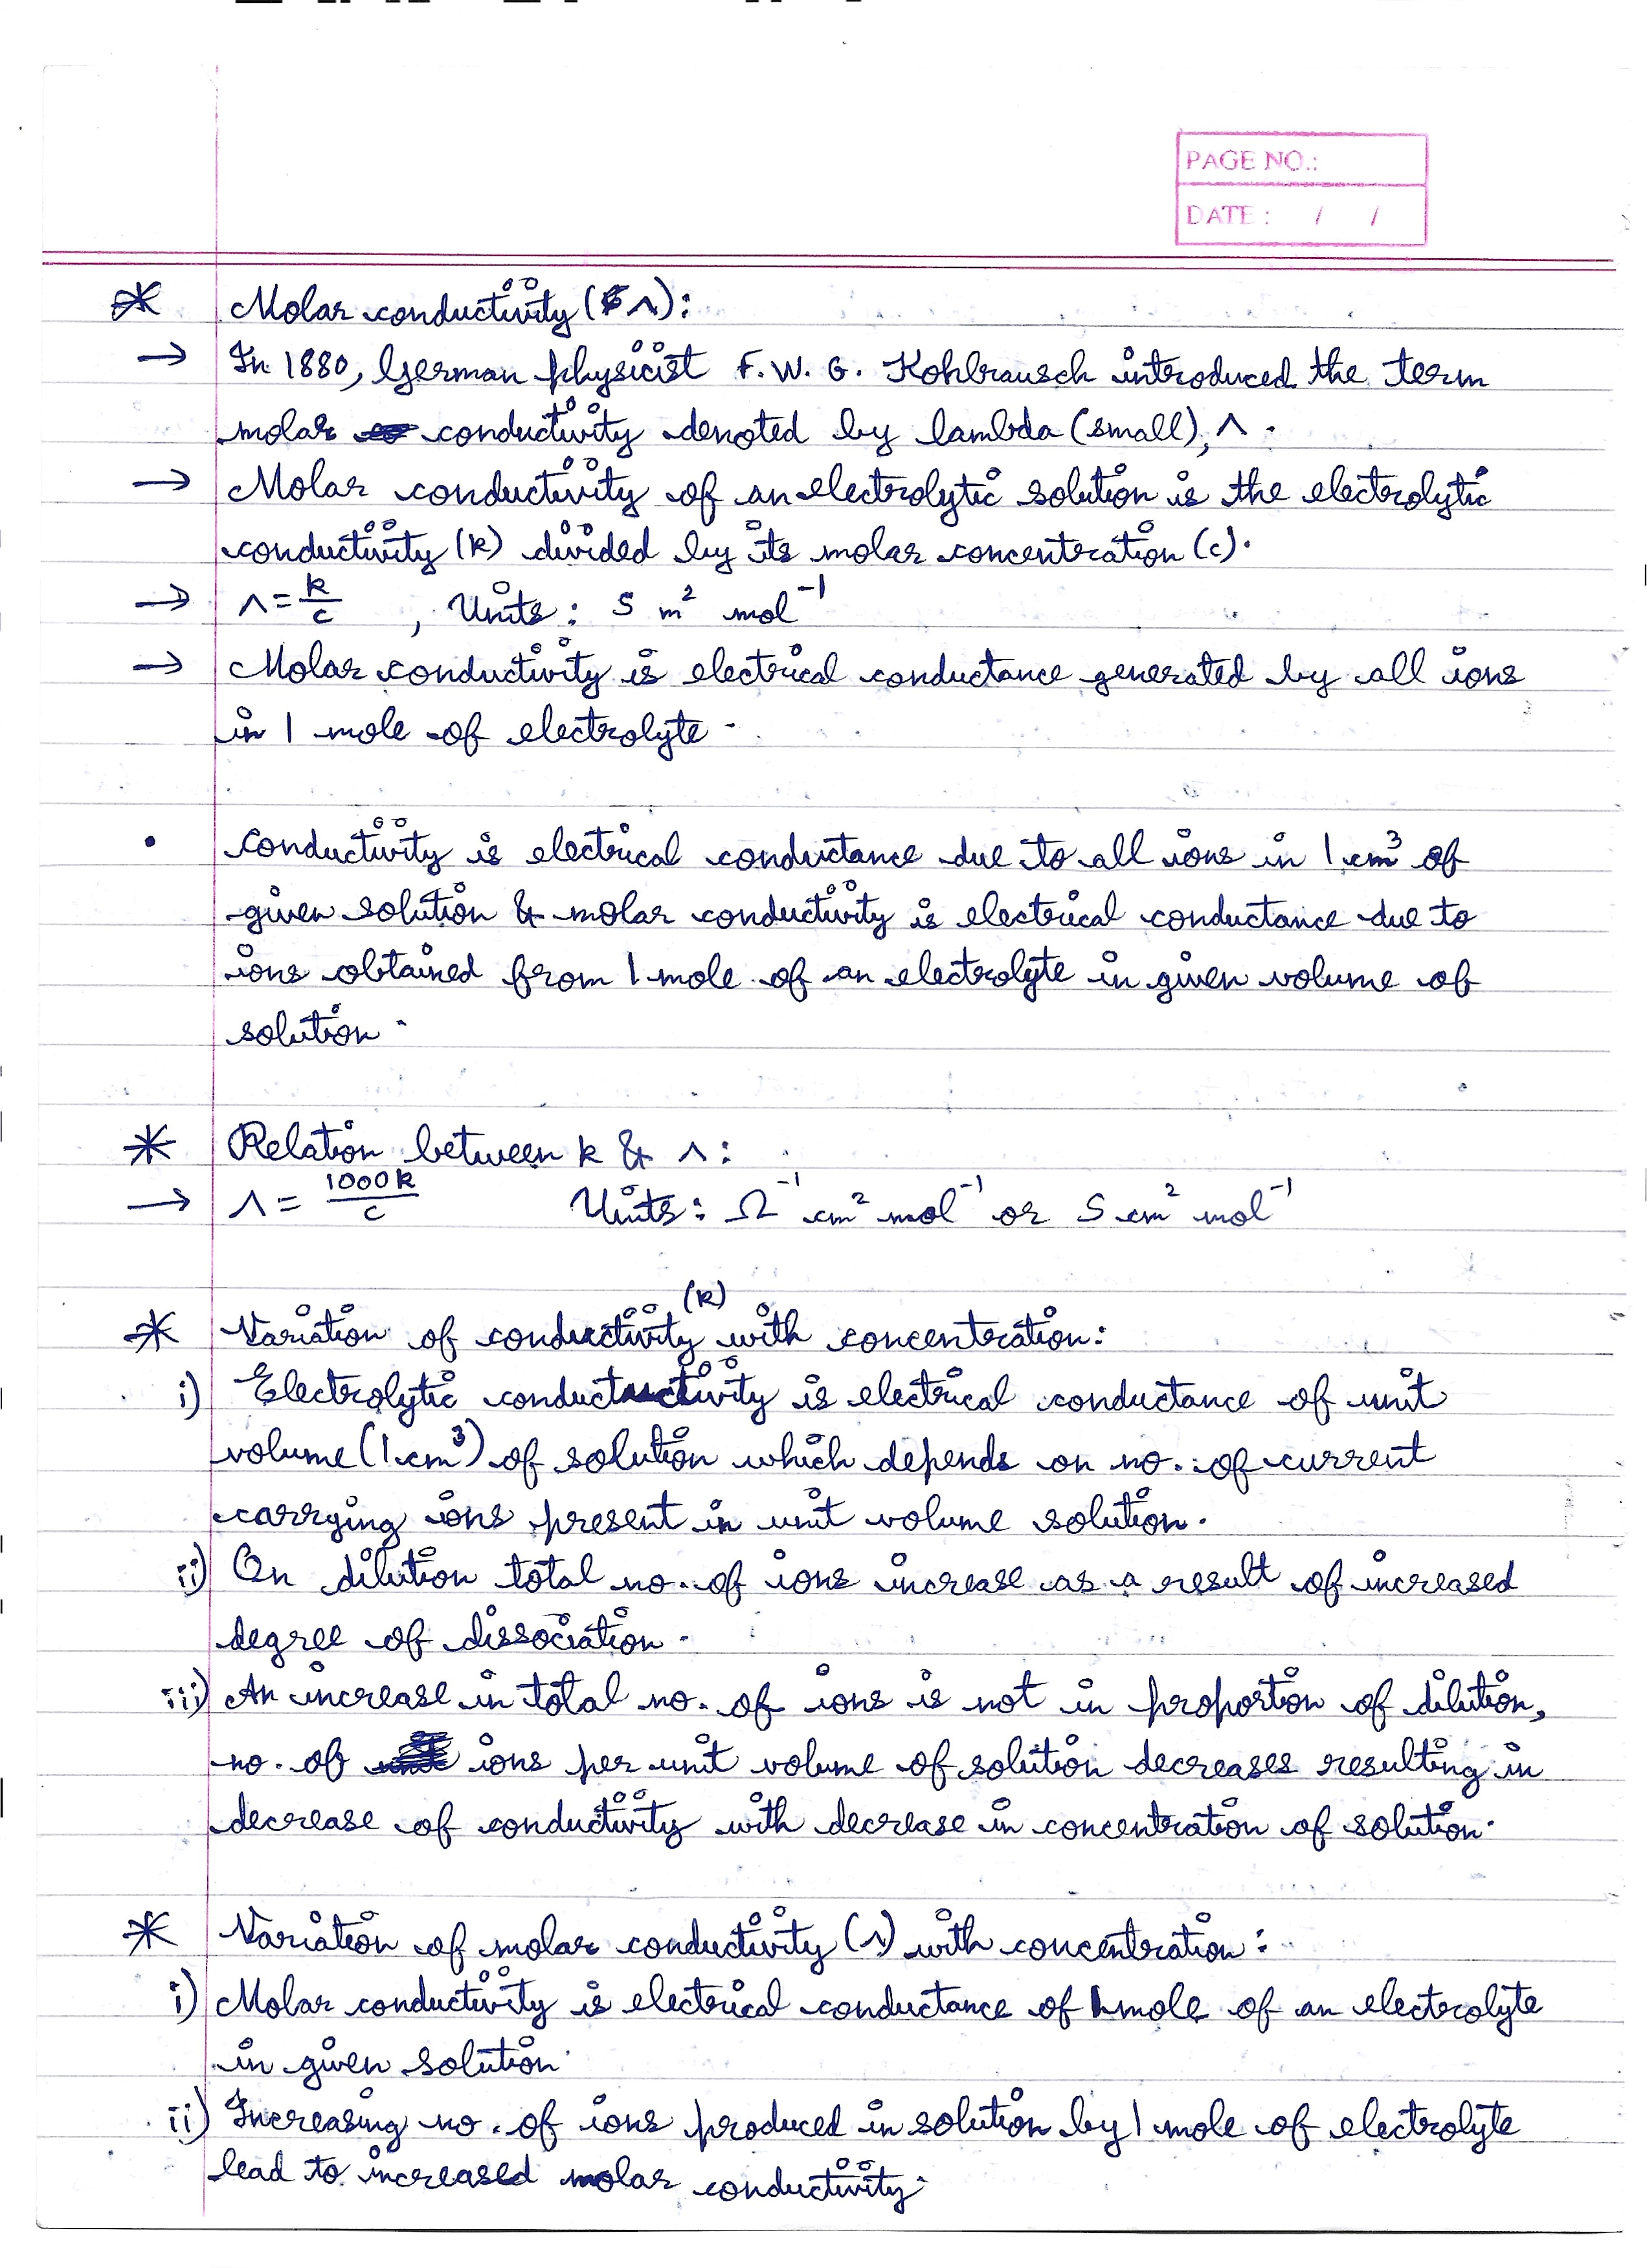 PAGE NO.:
DATE : / /
* Molar conductivity (Λ):
→ In 1880, German physicist F. W. G. Kohlrausch introduced the term
molar conductivity denoted by lambda (small), Λ.
→ Molar conductivity of an electrolytic solution is the electrolytic
conductivity (k) divided by its molar concentration (c).
→ Λ = k/c , Units: S m² mol⁻¹
→ Molar conductivity is electrical conductance generated by all ions
in 1 mole of electrolyte.
• Conductivity is electrical conductance due to all ions in 1 cm³ of
given solution & molar conductivity is electrical conductance due to
ions obtained from 1 mole of an electrolyte in given volume of
solution.
* Relation between k & Λ:
→ Λ = 1000k/c Units: Ω⁻¹ cm² mol⁻¹ or S cm² mol⁻¹
* Variation of conductivity (k) with concentration:
i) Electrolytic conductivity is electrical conductance of unit
volume (1 cm³) of solution which depends on no. of current
carrying ions present in unit volume solution.
ii) On dilution total no. of ions increase as a result of increased
degree of dissociation.
iii) An increase in total no. of ions is not in proportion of dilution,
no. of ions per unit volume of solution decreases resulting in
decrease of conductivity with decrease in concentration of solution.
* Variation of molar conductivity (Λ) with concentration:
i) Molar conductivity is electrical conductance of 1 mole of an electrolyte
in given solution.
ii) Increasing no. of ions produced in solution by 1 mole of electrolyte
lead to increased molar conductivity.